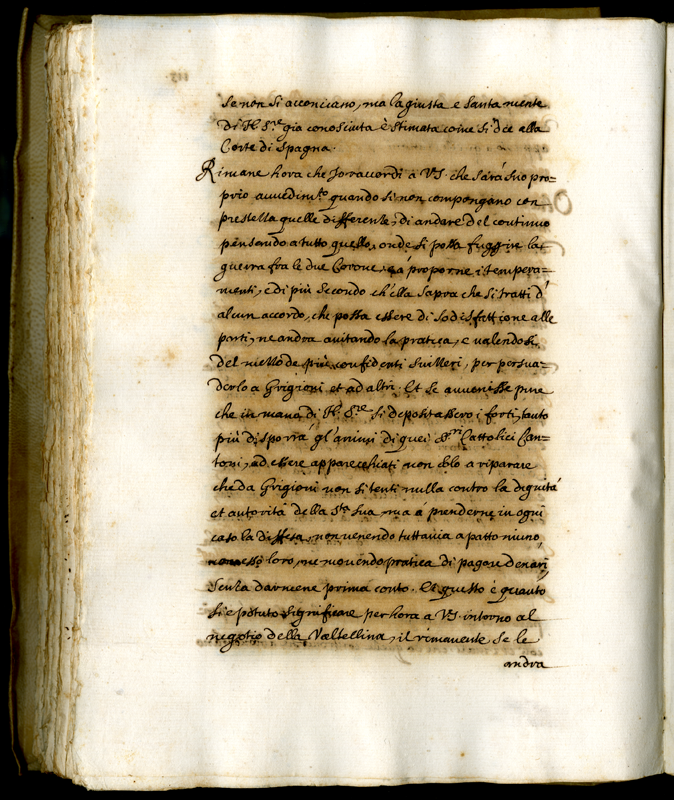 se non si acconciano, ma la giusta e santa mente
di N. Sre. gia conosciuta è stimata come si dee alla
Corte di Spagna.
Rimane hora che Io raccordi a VS. che sarà suo pro=
prio avvedimto. quando si non compongano con
prestezza quelle differenze, di andare del continuo
pensando a tutto quello, onde si possa fuggire la
guerra fra le due Corone, et à proporne i tempera=
menti, e di più secondo ch'ella saprà che si tratti d'
alcun accordo, che possa essere di sodisfattione alle
parti, ne andrà aiutando la pratica, e valendosi
del mezzo de più confidenti Svizzeri, per persua=
derlo a Grigioni et ad altri. Et se avvenisse pure
che in mano di N. Sre. si depositassero i forti, tanto
più disporrà gl'animi di quei Sri. Cattolici Can=
toni, ad essere apparecchiati non solo a riparare
che da Grigioni non si tenti nulla contro la dignità
et autorità della Sta. Sua, ma à prenderne in ogni
caso la diffesa, non venendo tuttavia a patto niuno,
loro, ne movendo pratica di pagar denari,
senza darmene prima conto. Et questo è quanto
si è potuto significare per hora a VS. intorno al
negotio della Valtellina, il rimanente se le
andrà